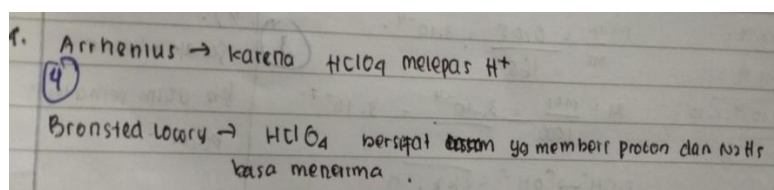 1. Arrhenius → karena HClO4 melepas H+
4
Bronsted Lowry → HClO4 bersifat yg memberi proton dan N2H5
basa menerima .